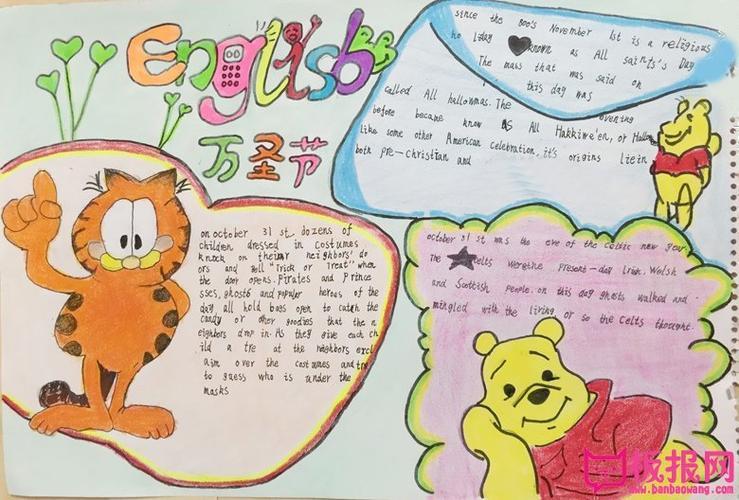 English
万圣节
since the 800's November 1st is a religious
holiday known as All saints's Day
The mass that was said on
this day was
called All hallowmas. The evening
before became know as All Hakkiwe'en, or Hallow
like some other American celebration, it's origins liein
both pre-christian and
on october 31 st. dozens of
children dressed in costumes
knock on theinr neighbors' do
ors and sell "Trick or Treat" when
the door opens. Pirates and Prince
sses, ghosts and popular heroes of the
day all hold baes open to catch the
candy or other goodies that the n
eighbors drop in. As they give each ch
ild a tre at the neighbors excl
aim over the costumes and try
to guess who is under the
masks
october 31 st was the eve of the Celtic new year.
The celts weretine present-day Lrish, Welsh
and Scottish people. on this day ghosts walked and
mingled with the living or so the Celts thought.
板报网
www.banbaowang.com